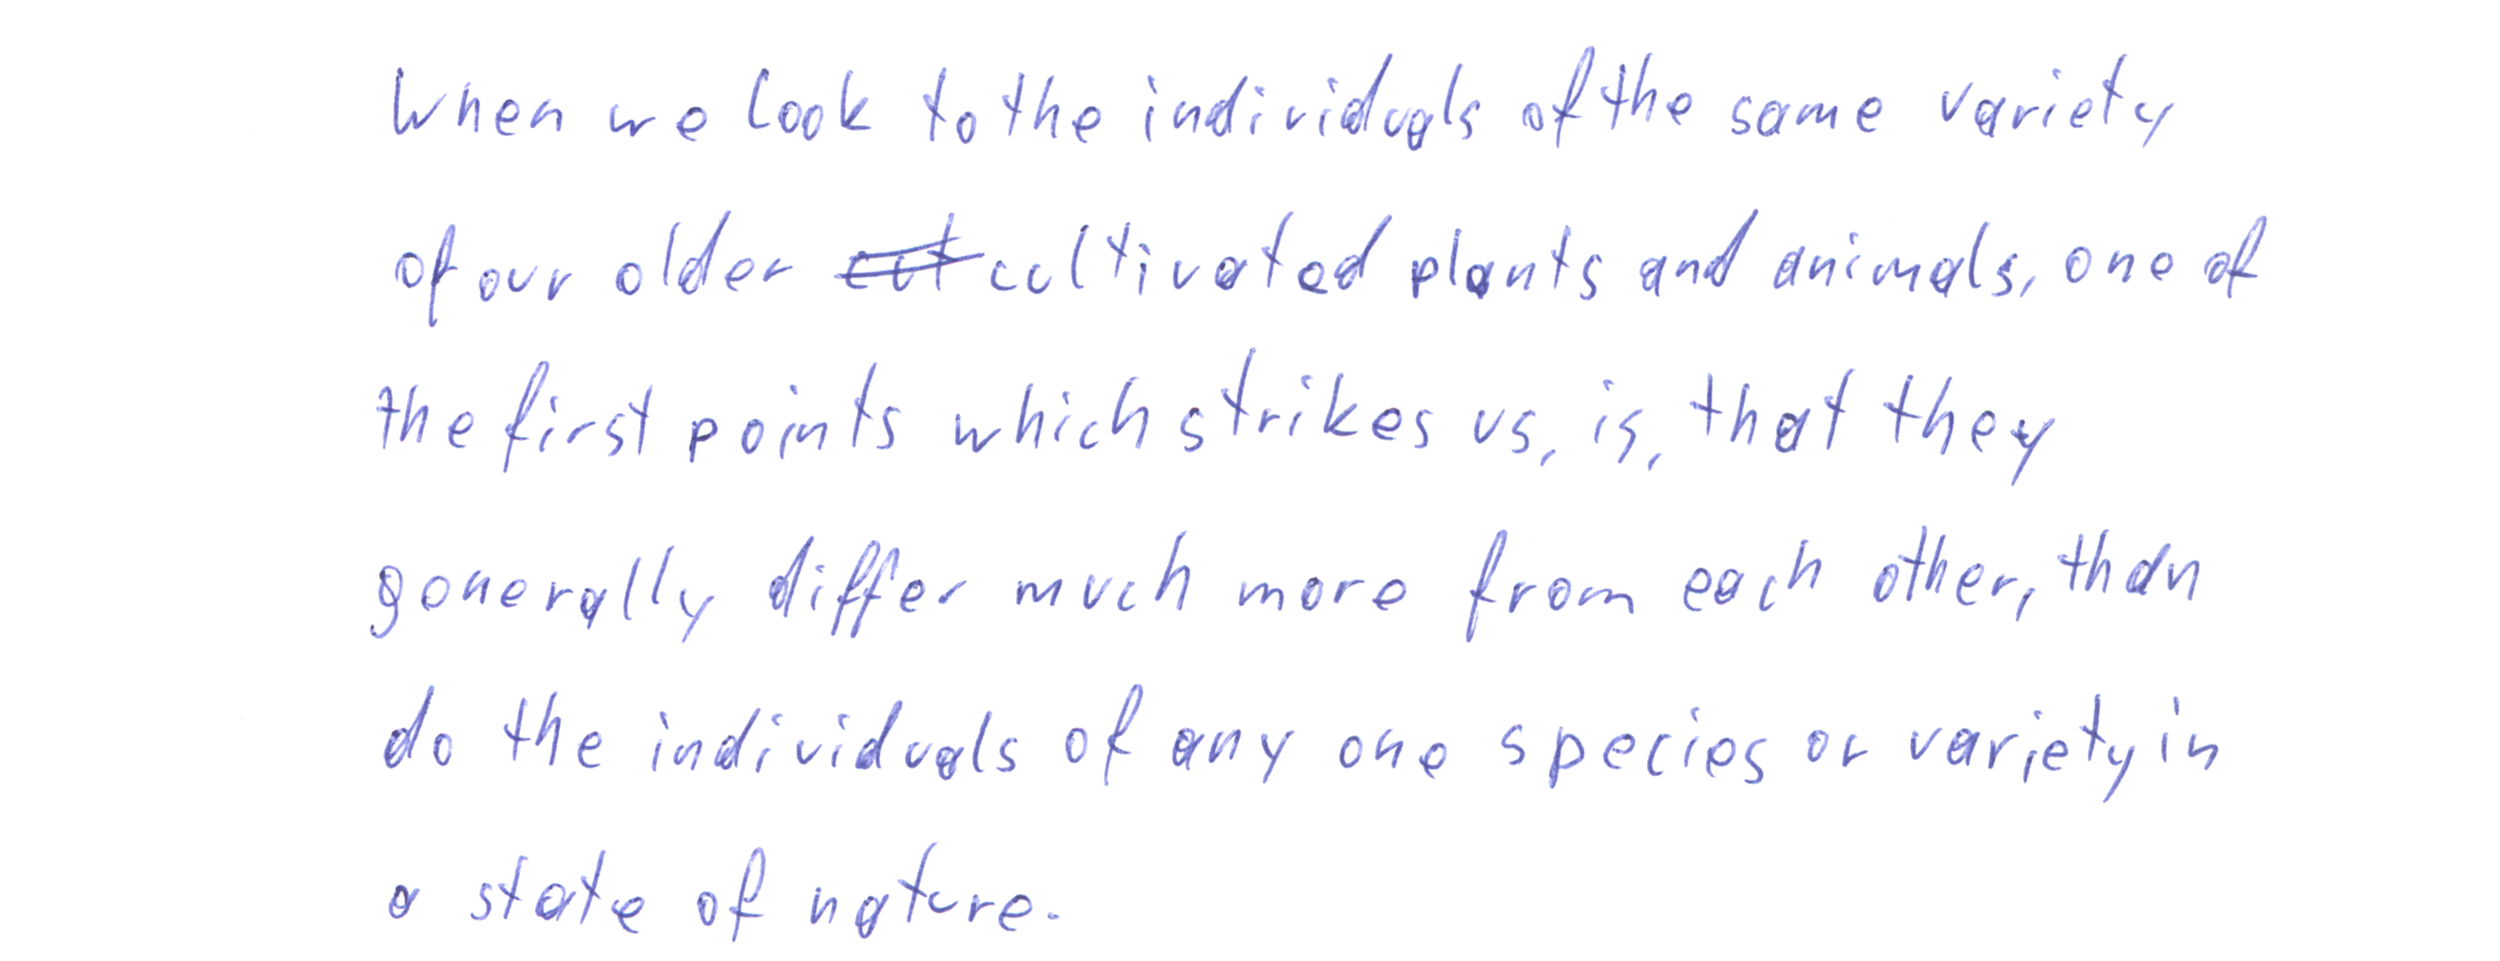 When we look to the individuals of the same variety
of our older cut cultivated plants and animals, one of
the first points which strikes us, is, that they
generally differ much more from each other, than
do the individuals of any one species or variety in
a state of nature.